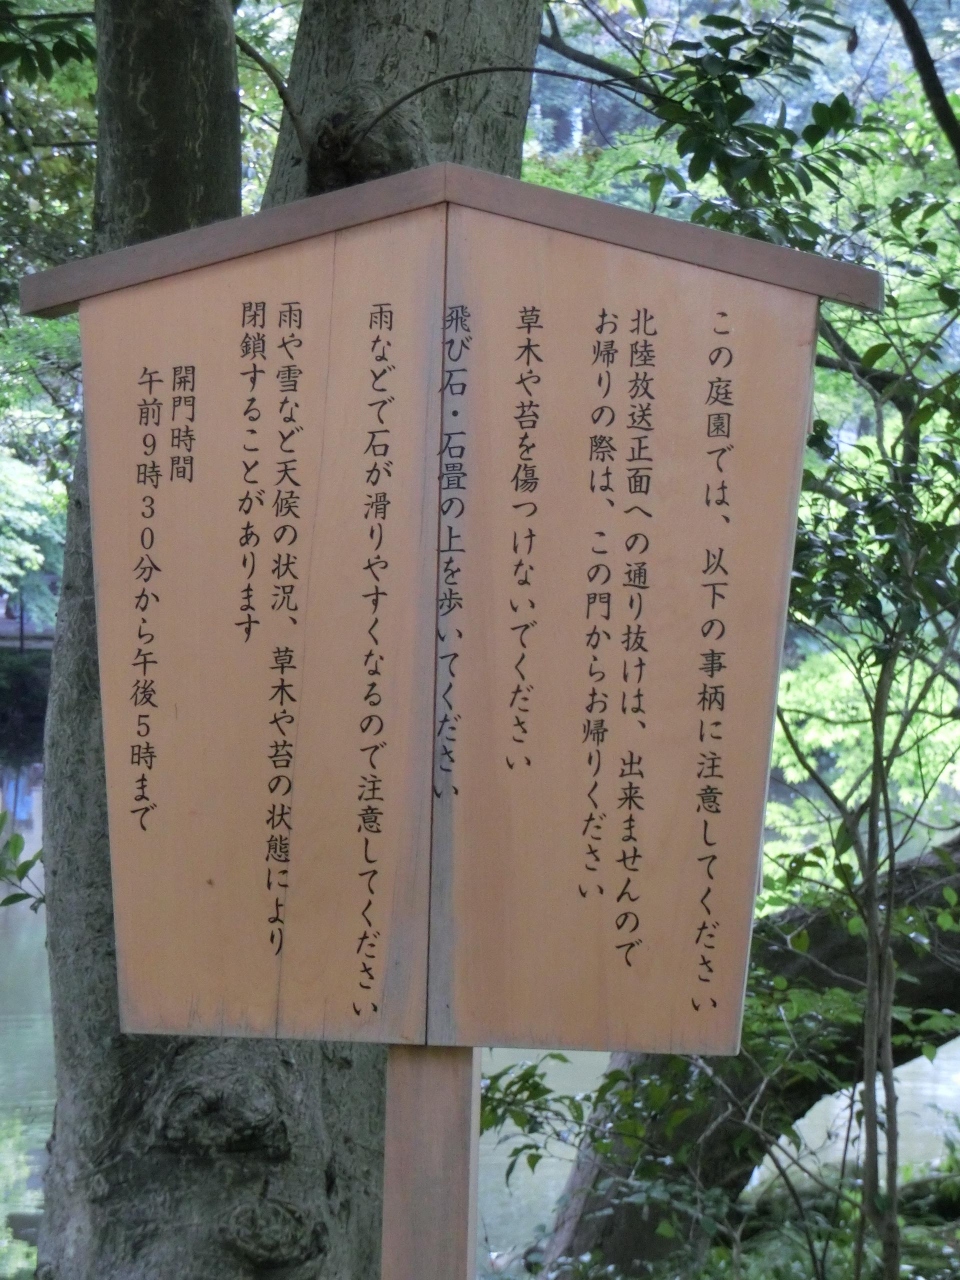 この庭園では、以下の事柄に注意してください
北陸放送正面への通り抜けは、出来ませんので
お帰りの際は、この門からお帰りください
草木や苔を傷つけないでください
飛び石・石畳の上を歩いてください
雨などで石が滑りやすくなるので注意してください
雨や雪など天候の状況、草木や苔の状態により
閉鎖することがあります
開門時間
午前9時30分から午後5時まで